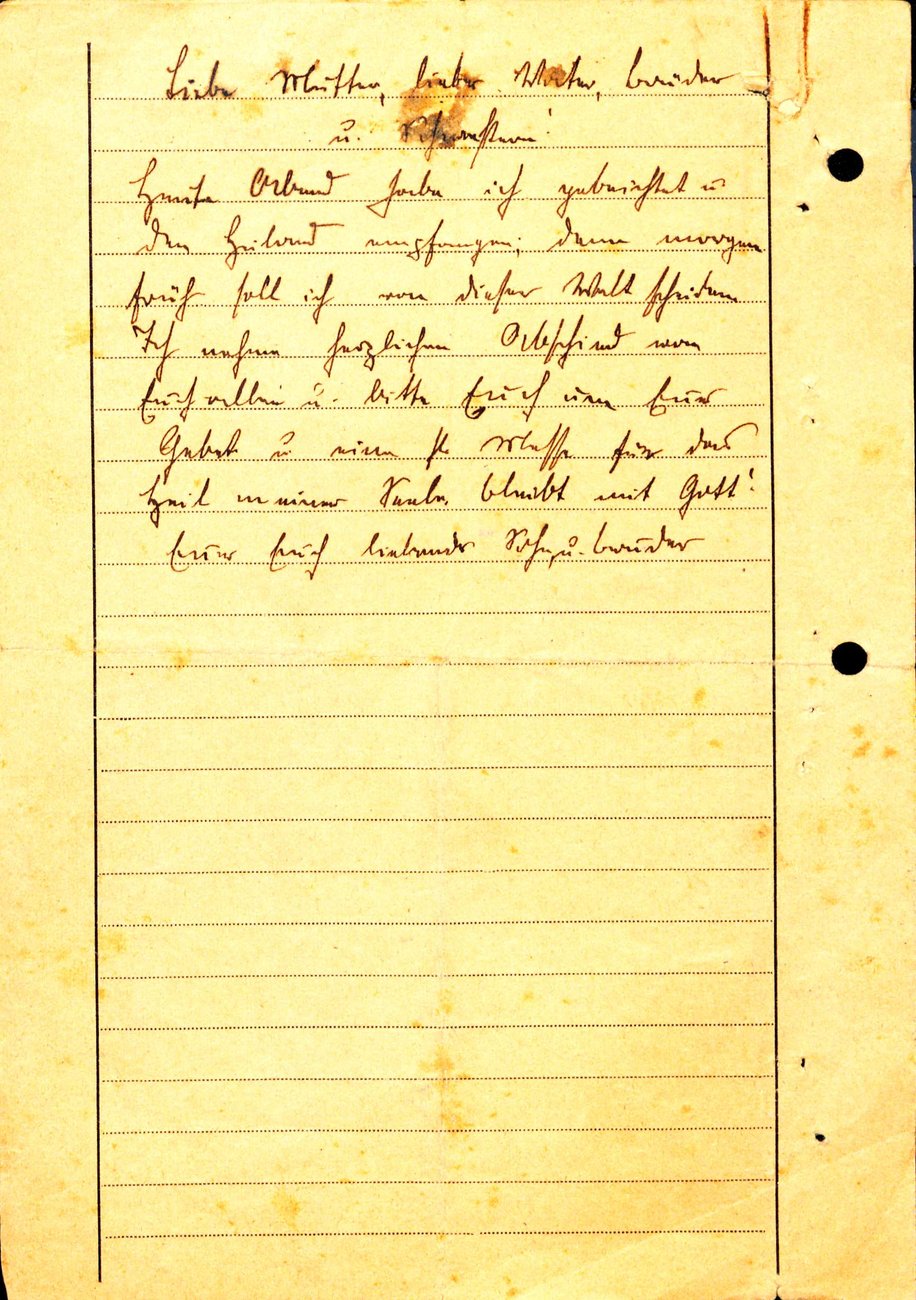 Liebe Mutter, lieber Vater, Brüder
u. Schwestern!
Heute Abend habe ich gebeichtet u
den Heiland empfangen; denn morgen
früh soll ich von dieser Welt scheiden
Ich nehme herzlichen Abschied von
Euch allen u. bitte Euch um Euer
Gebet u eine hl Messe für das
Heil meiner Seele. bleibt mit Gott!
Euer Euch liebender Sohn u. bruder